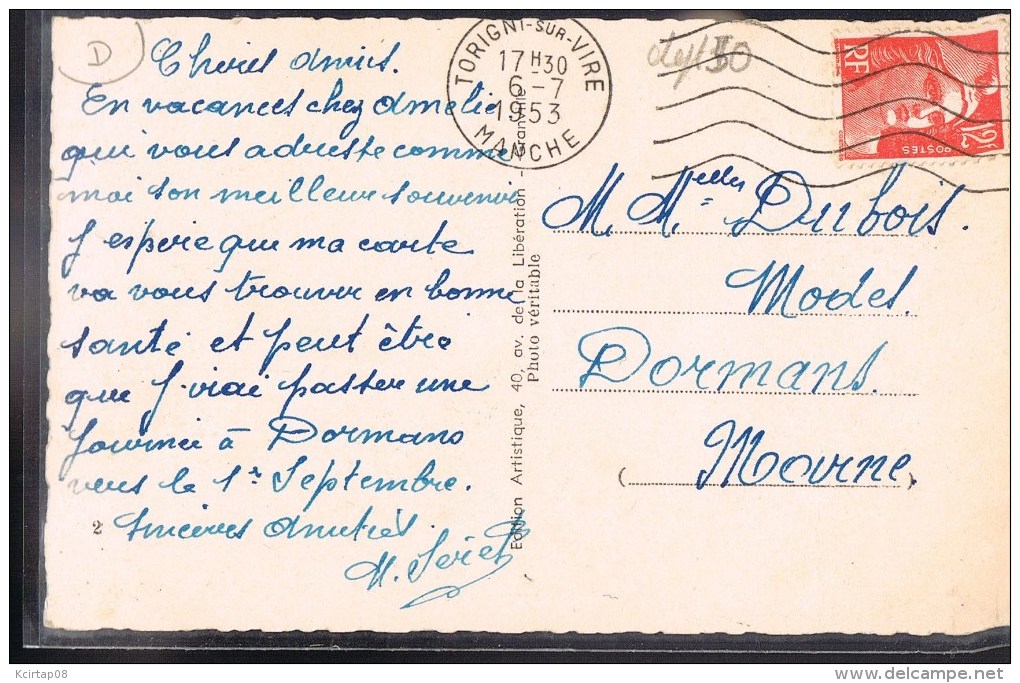 D
Chères amies.
En vacances chez Amelie
qui vous adresse comme
moi son meilleur souvenir
J'espère que ma carte
va vous trouver en bonne
santé et peut être
que j'irai passer une
journée à Dormans
vers le 1er Septembre.
Sincères Amitiés
2
TORIGNI-SUR-VIRE
17H30
6-7
1953
MANCHE
RF
POSTES
12F
Edition Artistique, 40, av. de la Libération -
Photo véritable
M. Melles Dubois.
Modes.
Dormans.
(Marne)
Kcirtap08
delcampe.net